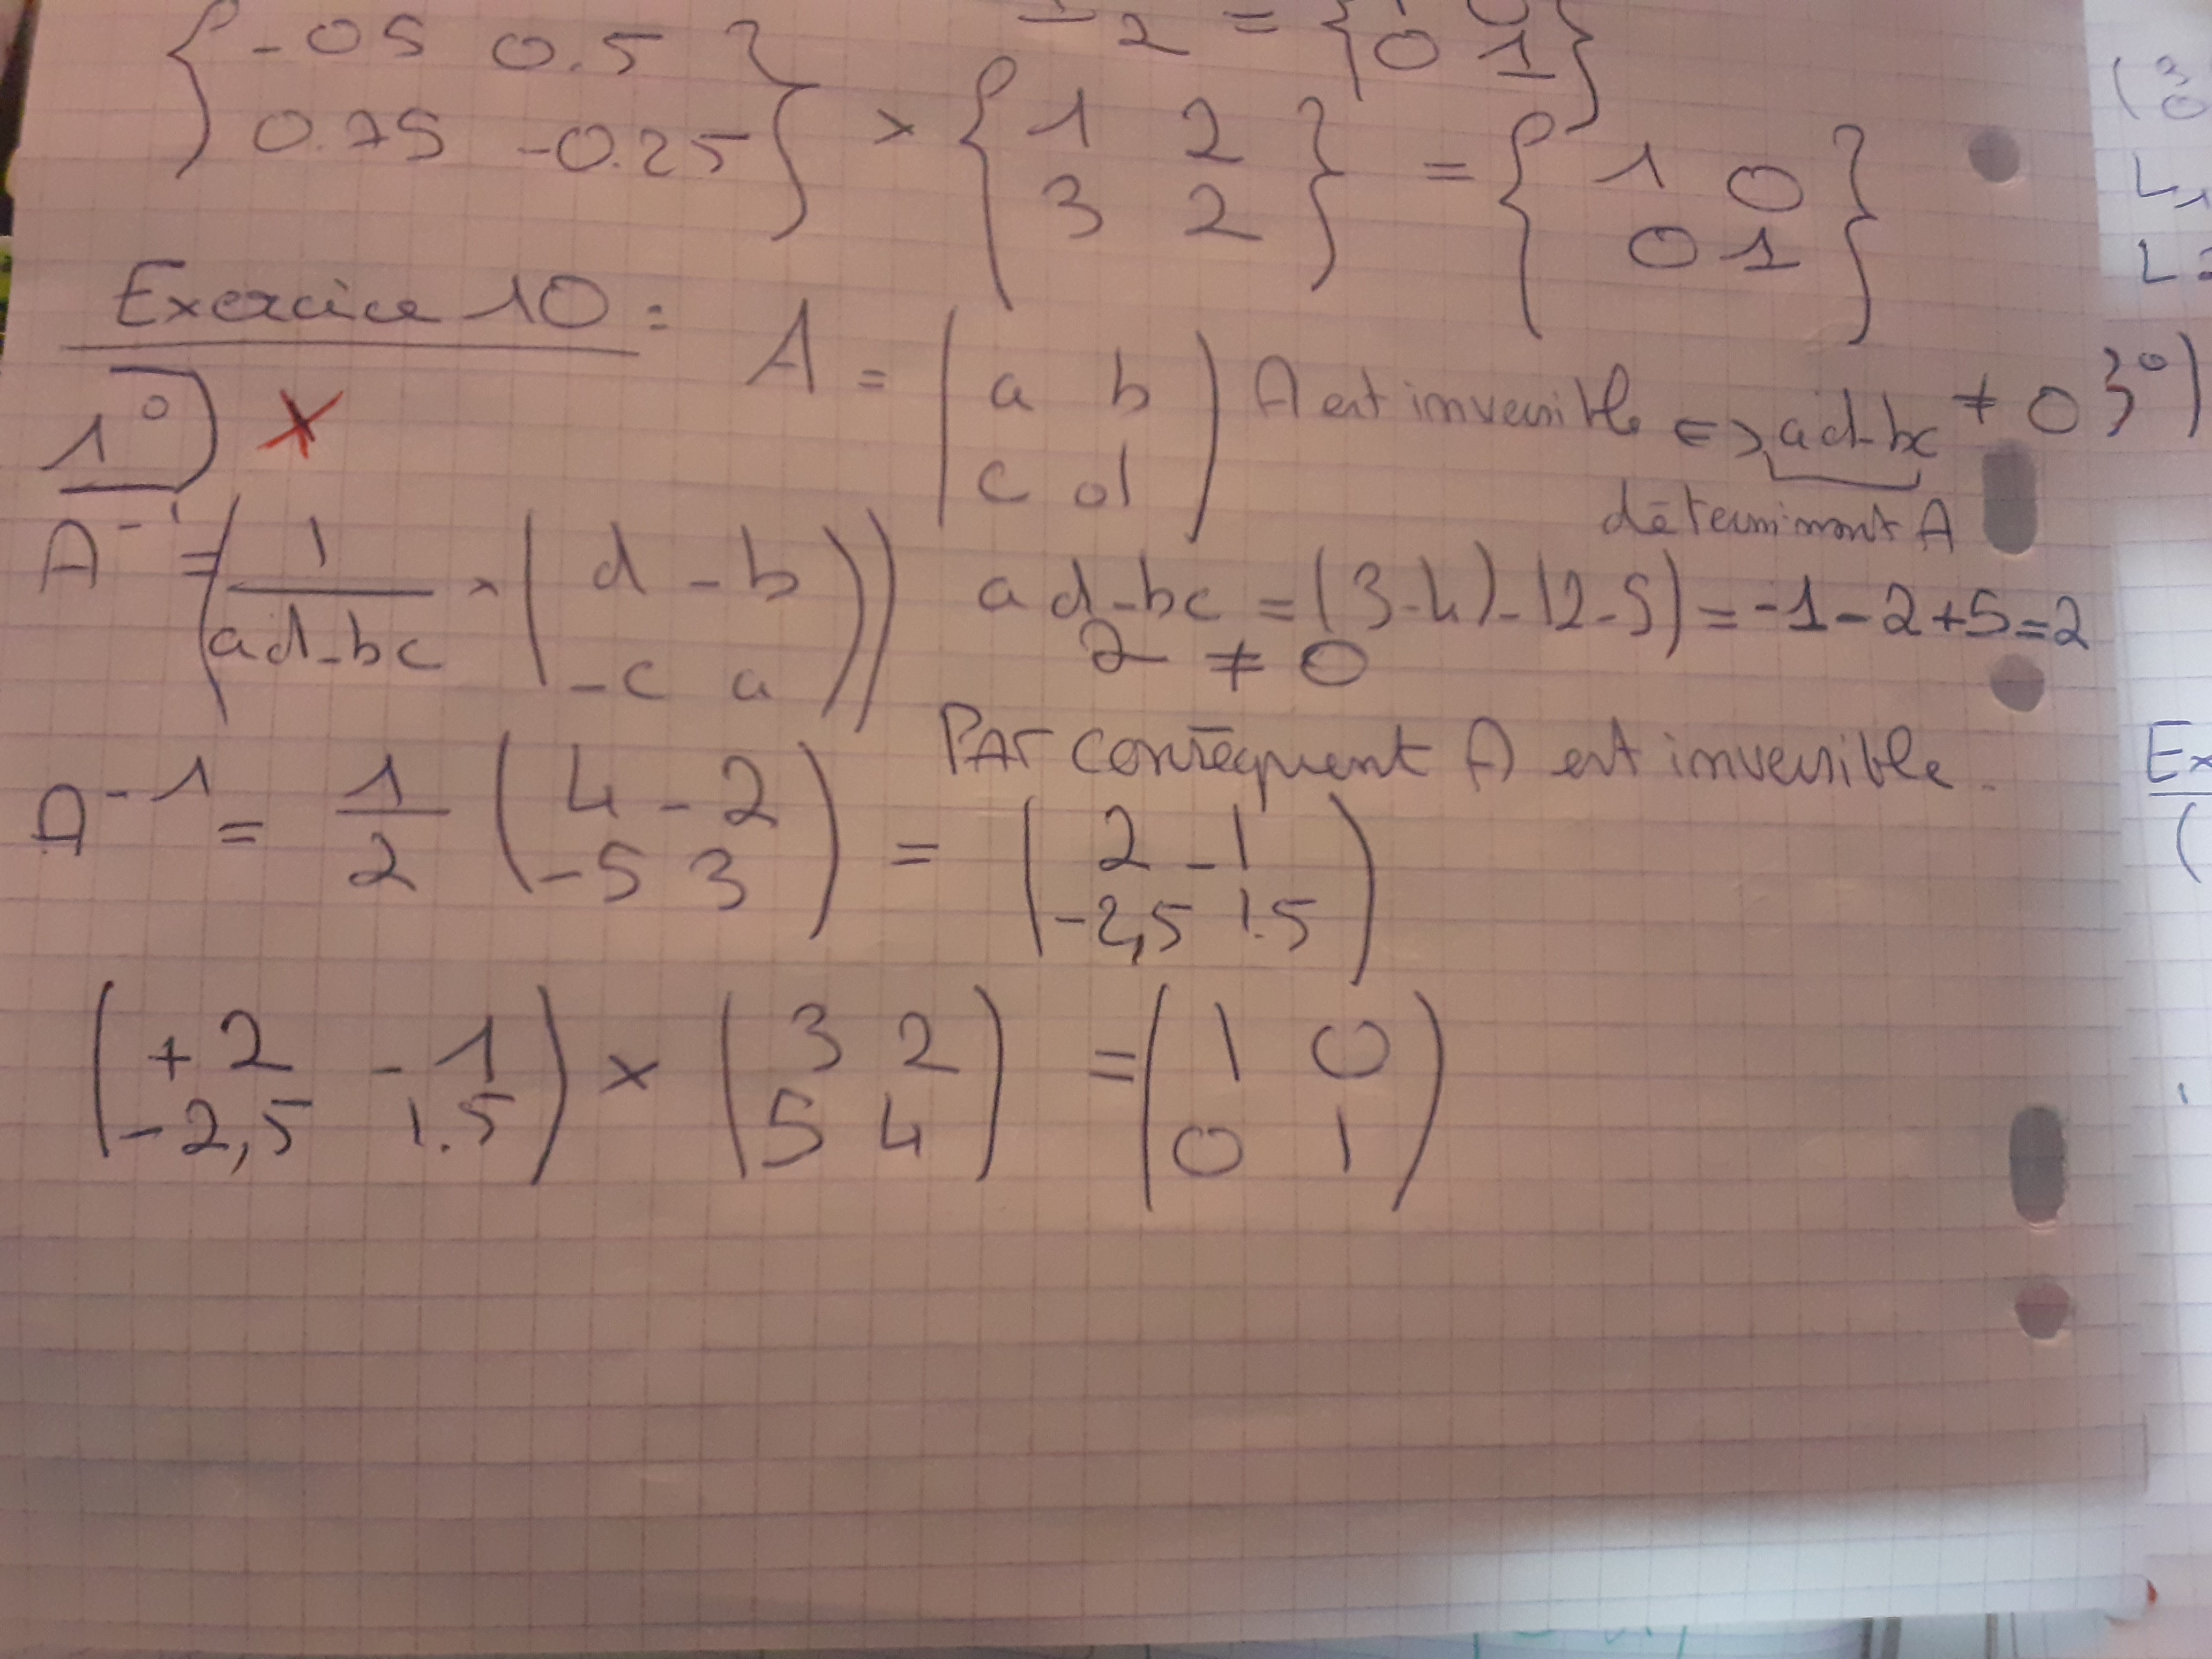 2 = { 0 1 }
{ -05 0.5
0.75 -0.25 } × { 1 2
3 2 } = { 1 0
0 1 }
Exercice 10 : A = ( a b
c d ) A est inversible <=> ad-bc ≠ 0
déterminant A
1°) X
A⁻¹ = ( 1/ad-bc × ( d -b
-c a ) )
ad-bc = (3-4)-(2-5) = -1-2+5=2
2 ≠ 0
PAr conséquent A est inversible.
A⁻¹ = 1/2 ( 4 -2
-5 3 ) = ( 2 -1
-2,5 1.5 )
( +2 -1
-2,5 1.5 ) × ( 3 2
5 4 ) = ( 1 0
0 1 )
3°)
L1
L2
Ex